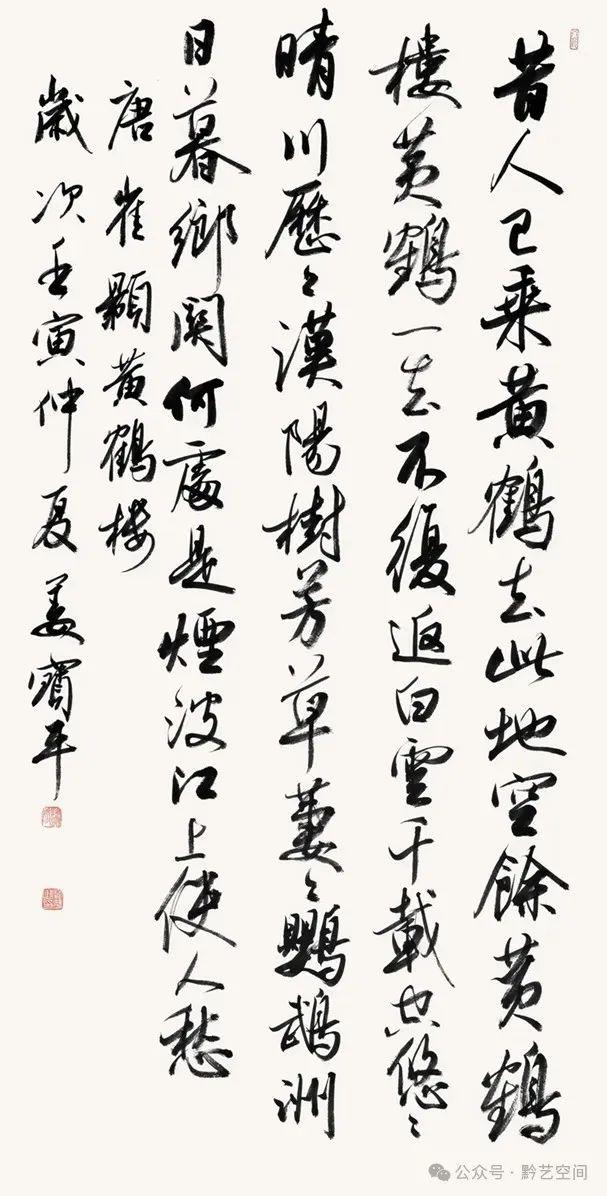 昔人已乘黄鶴去此地空餘黄鶴
樓黄鶴一去不復返白雲千載空悠々
晴川歷々漢陽樹芳草萋々鸚鵡洲
日暮鄉關何處是煙波江上使人愁
唐崔顥黄鶴樓
歲次壬寅仲夏姜寶平
公众号 · 黔艺空间